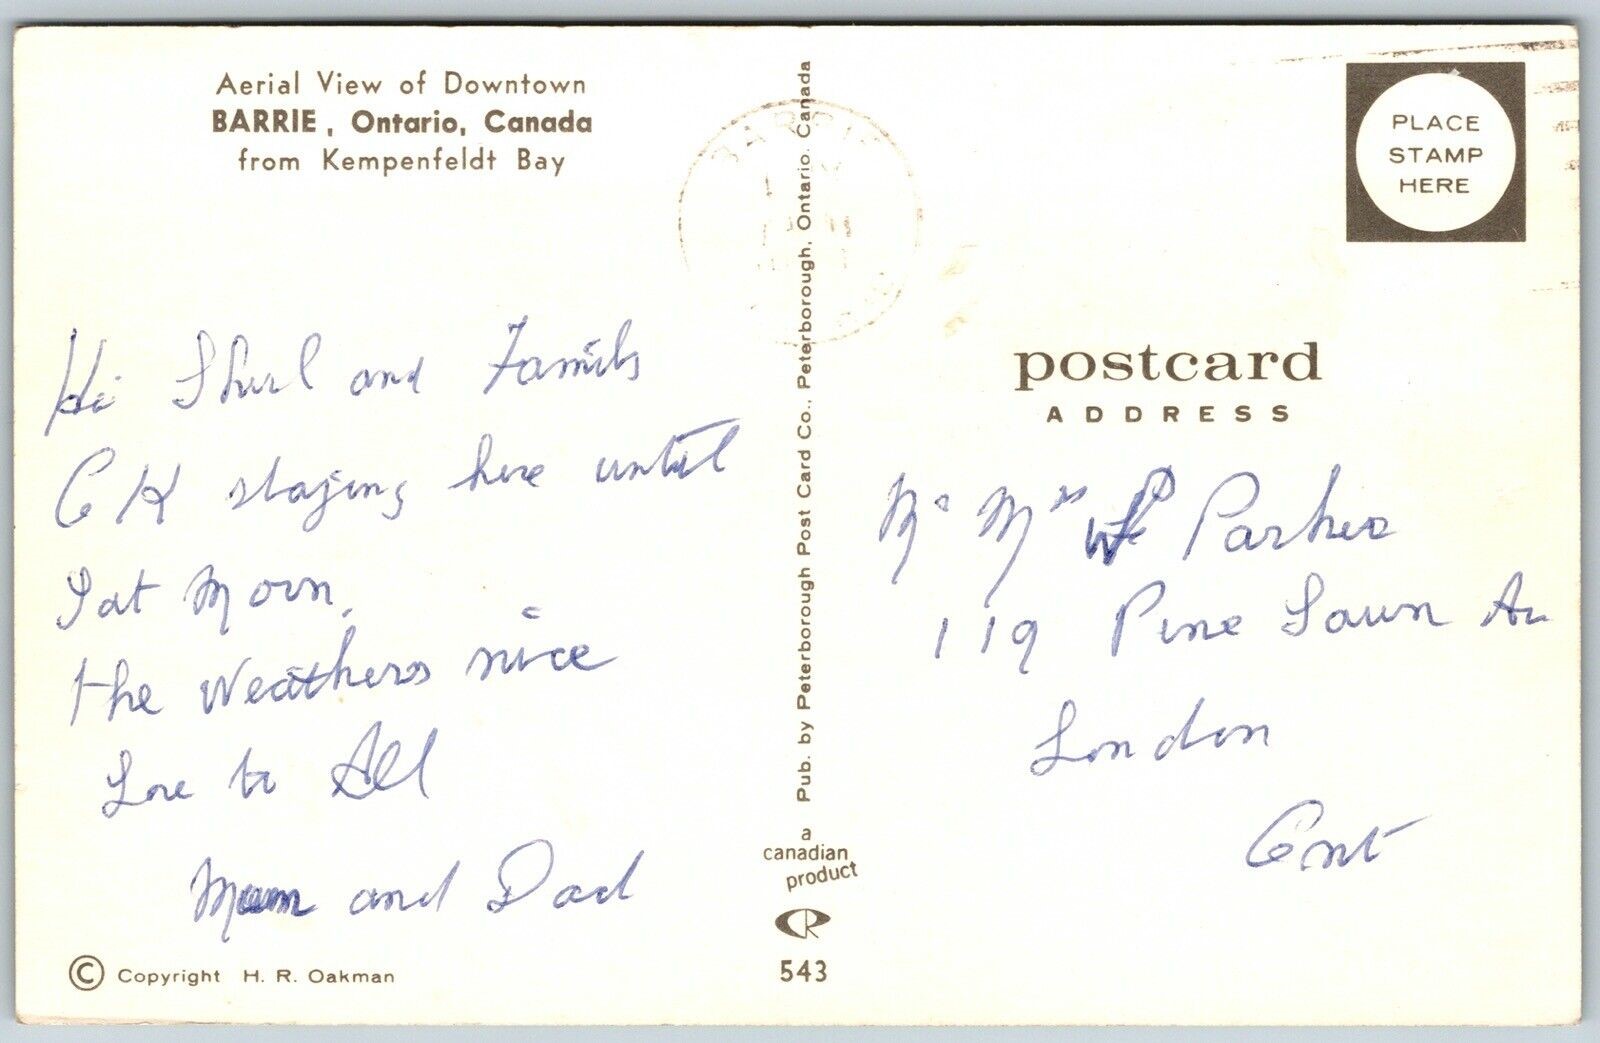 Aerial View of Downtown
BARRIE, Ontario, Canada
from Kempenfeldt Bay
Hi Shirl and Family
O K staying here until
Sat Morn,
the Weathers nice
Love to All
Mum and Dad
© Copyright H. R. Oakman
BARRIE
Pub. by Peterborough Post Card Co., Peterborough, Ontario. Canada
a
canadian
product
CR
543
PLACE
STAMP
HERE
postcard
ADDRESS
Mr Mrs Parker
119 Pine Lawn Av
London
Ont